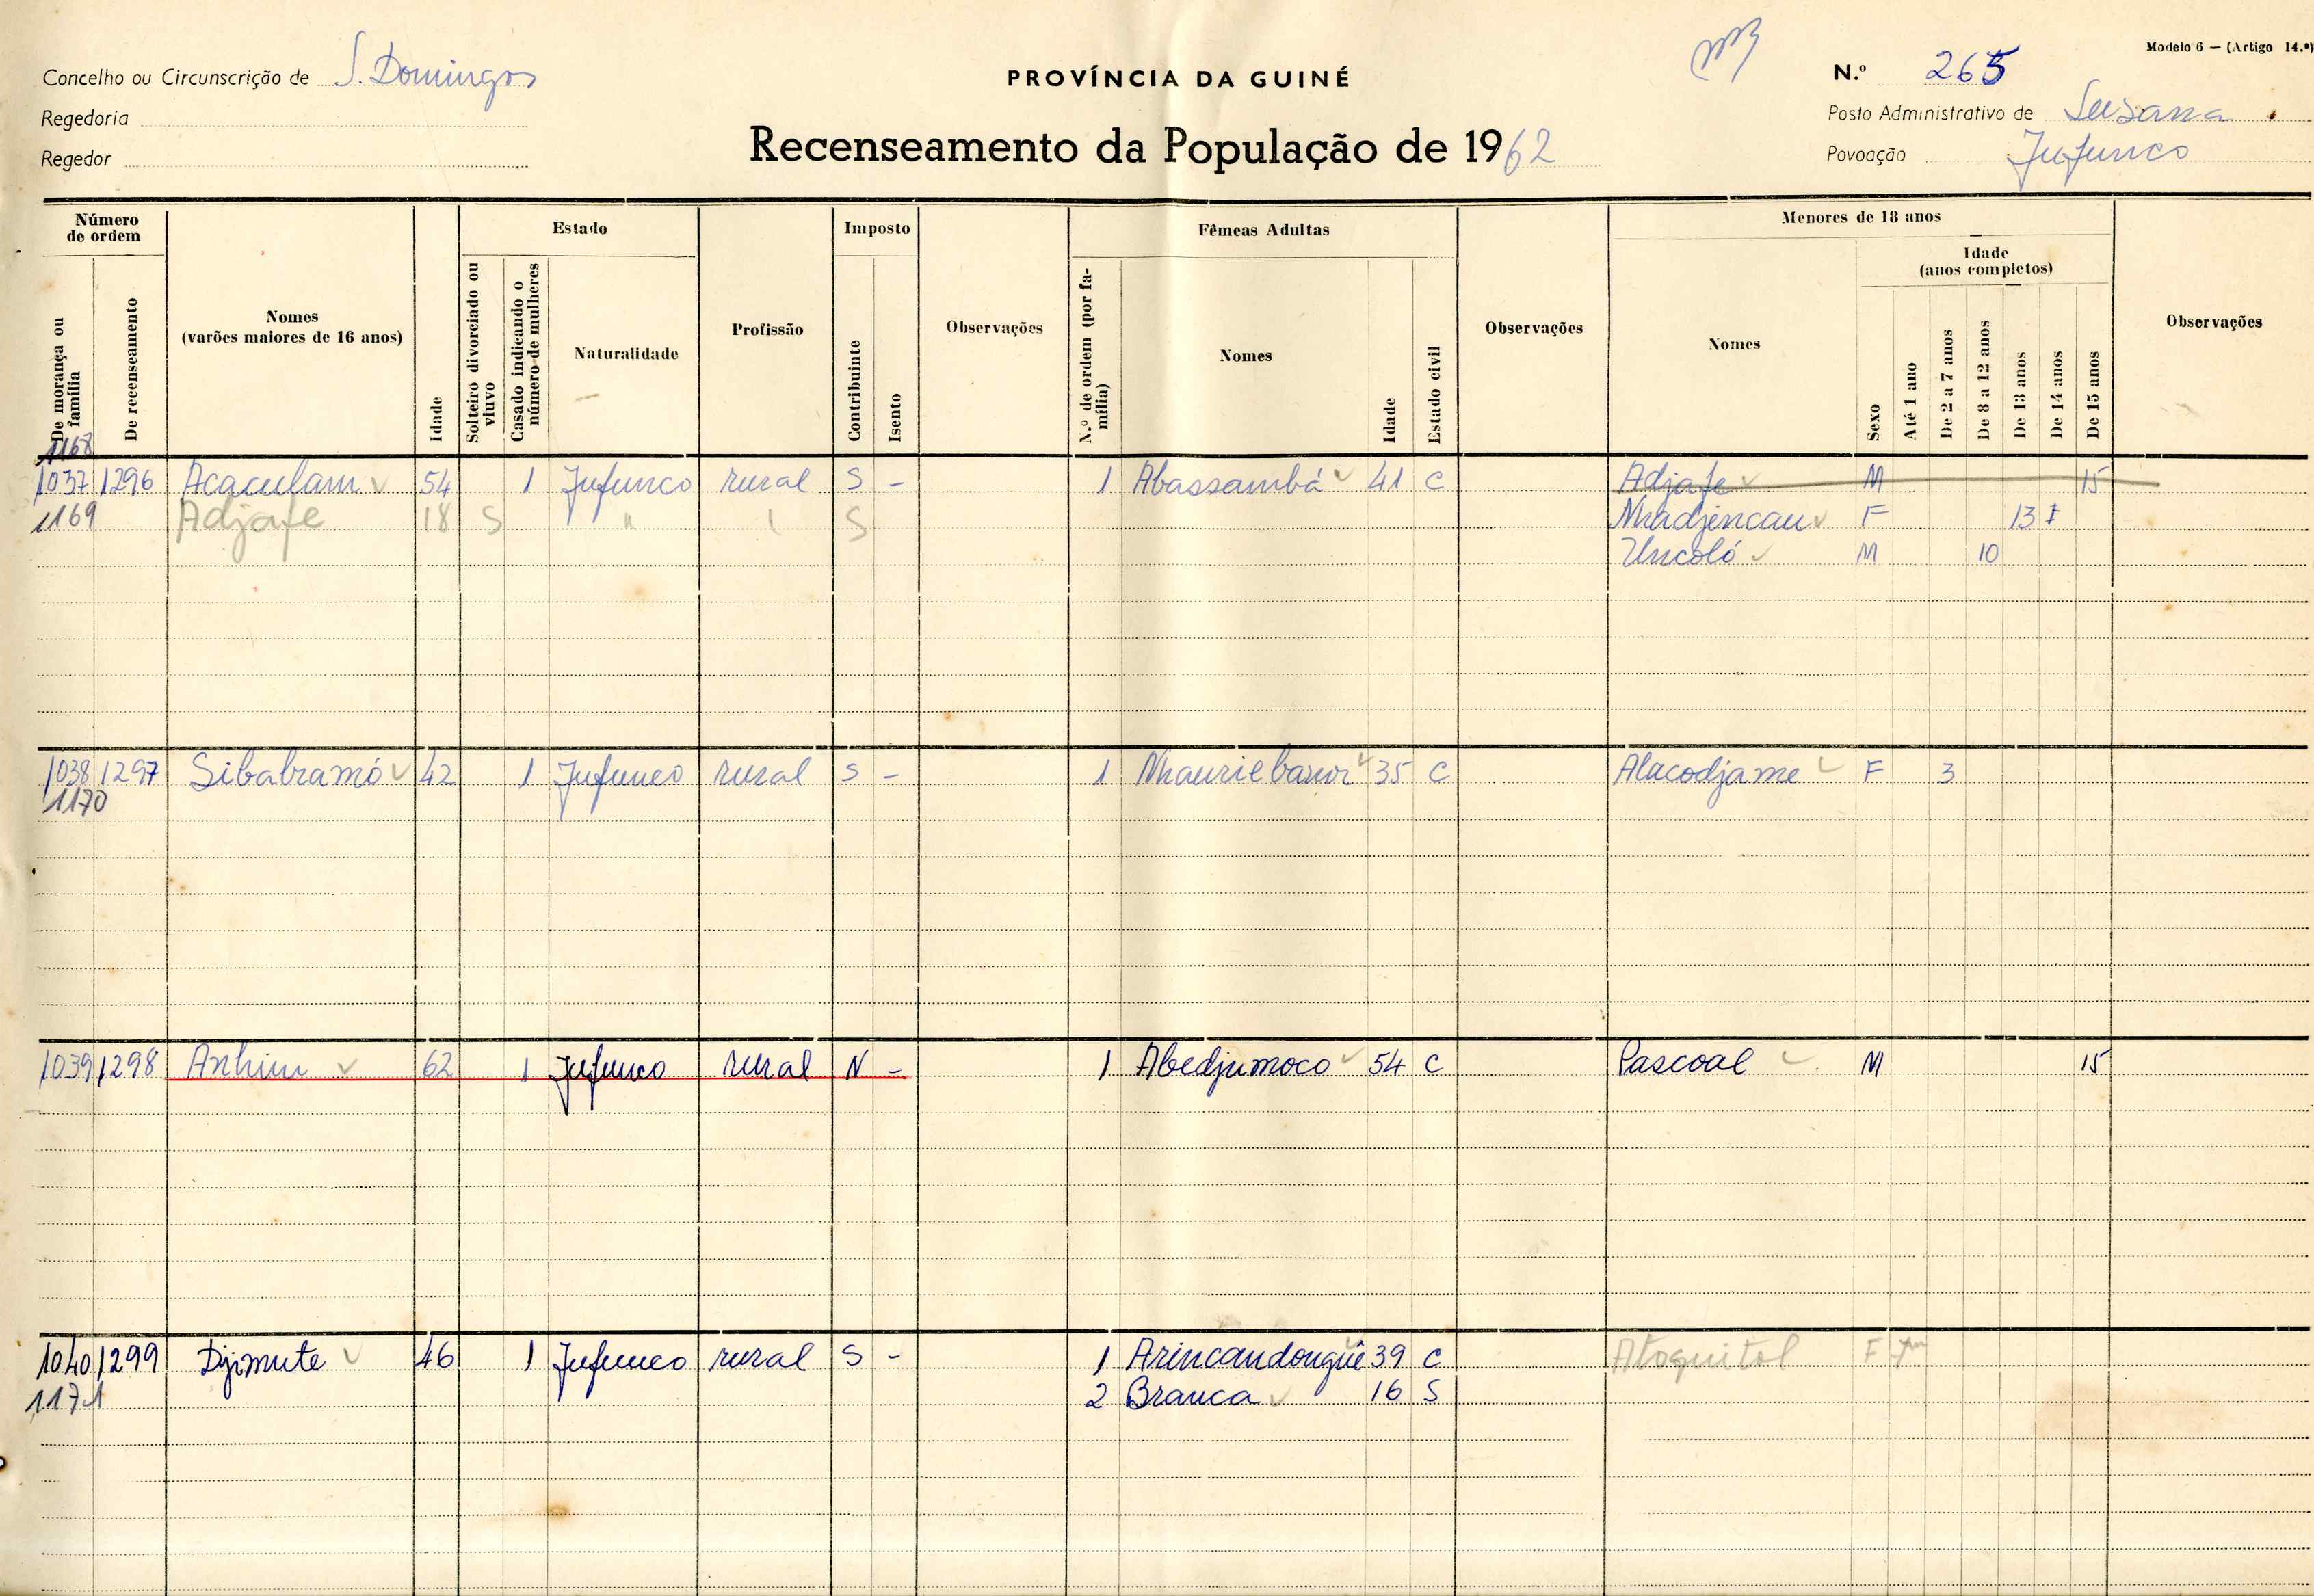 Modelo 6 — (Artigo 14.º)
Concelho ou Circunscrição de S. Domingos
PROVÍNCIA DA GUINÉ
N.º 265
Regedoria
Posto Administrativo de Susana
Regedor
Recenseamento da População de 1962
Povoação Jufunco
Número de ordem
De morança ou família
De recenseamento
Nomes (varões maiores de 16 anos)
Idade
Estado
Solteiro divorciado ou viuvo
Casado indicando o número de mulheres
Naturalidade
Profissão
Imposto
Contribuinte
Isento
Observações
Fêmeas Adultas
N.º de ordem (por família)
Nomes
Idade
Estado civil
Observações
Menores de 18 anos
Nomes
Sexo
Idade (anos completos)
Até 1 ano
De 2 a 7 anos
De 8 a 12 anos
De 13 anos
De 14 anos
De 15 anos
Observações
1168
1037 1296 Acaculam 54 1 Jufunco rural S - 1 Abassambá 41 C Adjafe M 15
1169 Adjafe 18 S " " S Nhadjencau F 13
Uncoló M 10
1038 1297 Sibabramó 42 1 Jufunco rural S - 1 35 C Alacodjame F 3
1170
1039 1298 Anhim 62 1 Jufunco rural N - 1 Abedjumoco 54 C Pascoal M 15
1040 1299 Djimute 46 1 Jufunco rural S - 1 Arincandongue 39 C Atoquitol F
1171 2 Branca 16 S